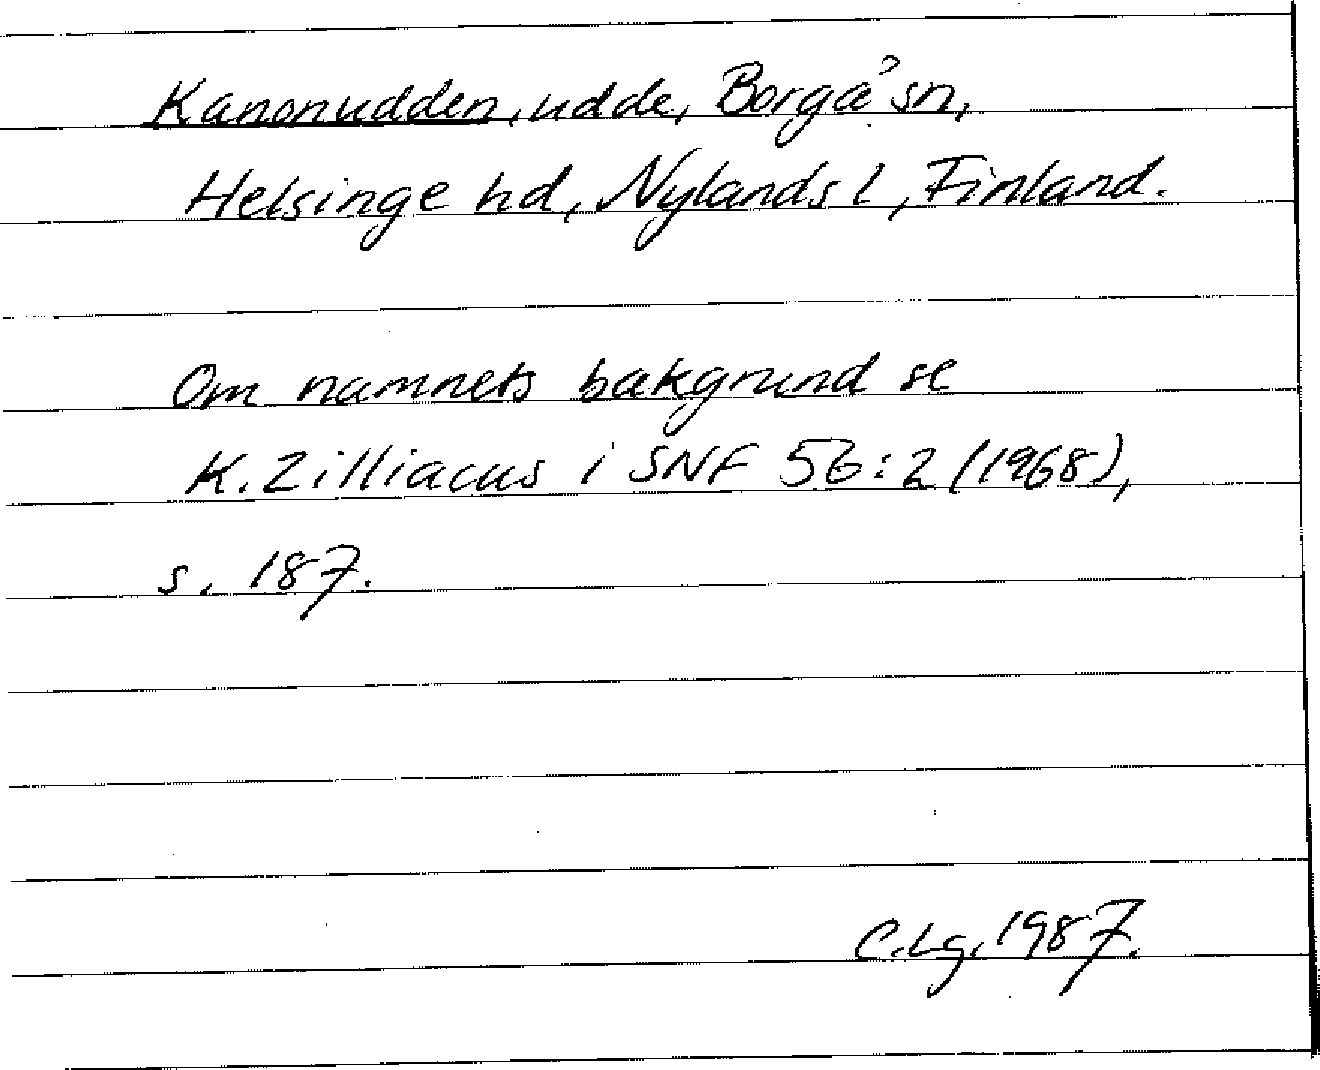 Kanonudden, udde, Borgå sn,
Helsinge hd, Nylands l, Finland.
Om namnets bakgrund se
K. Zilliacus i SNF 56:2 (1968),
s. 187.
C.Lg. 1987.